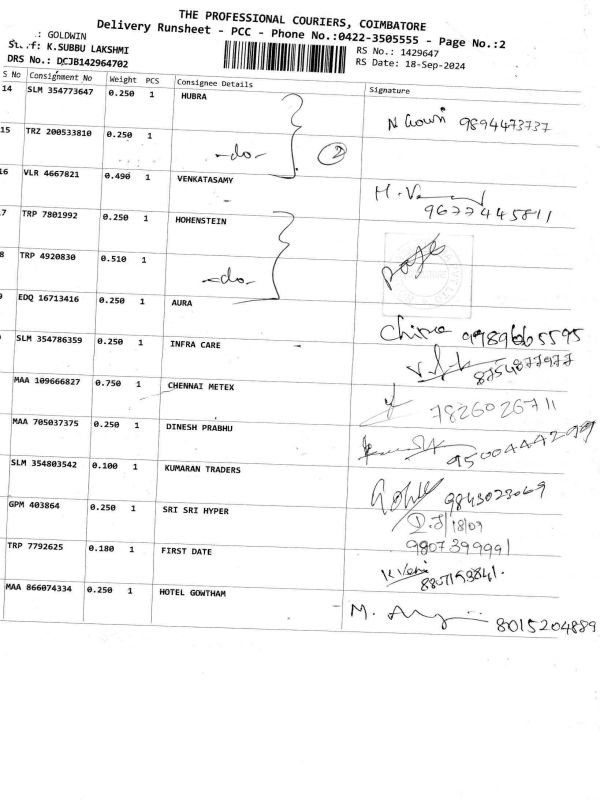 THE PROFESSIONAL COURIERS, COIMBATORE
Delivery Runsheet - PCC - Phone No.:0422-3505555 - Page No.:2
: GOLDWIN
f: K.SUBBU LAKSHMI
RS No.: 1429647
DRS No.: DCJB142964702
RS Date: 18-Sep-2024
S No Consignment No Weight PCS Consignee Details Signature
14 SLM 354773647 0.250 1 HUBRA 9894473737
15 TRZ 200533810 0.250 1 -do- 2
16 VLR 4667821 0.490 1 VENKATASAMY 9677445811
7 TRP 7801992 0.250 1 HOHENSTEIN
8 TRP 4920830 0.510 1 -do-
EDQ 16713416 0.250 1 AURA 9789665595
SLM 354786359 0.250 1 INFRA CARE 8754877977
MAA 109666827 0.750 1 CHENNAI METEX 7826026711
MAA 705037375 0.250 1 DINESH PRABHU
SLM 354803542 0.100 1 KUMARAN TRADERS 9843023069
GPM 403864 0.250 1 SRI SRI HYPER 18/09
9807399991
TRP 7792625 0.180 1 FIRST DATE
MAA 866074334 0.250 1 HOTEL GOWTHAM 8015204889